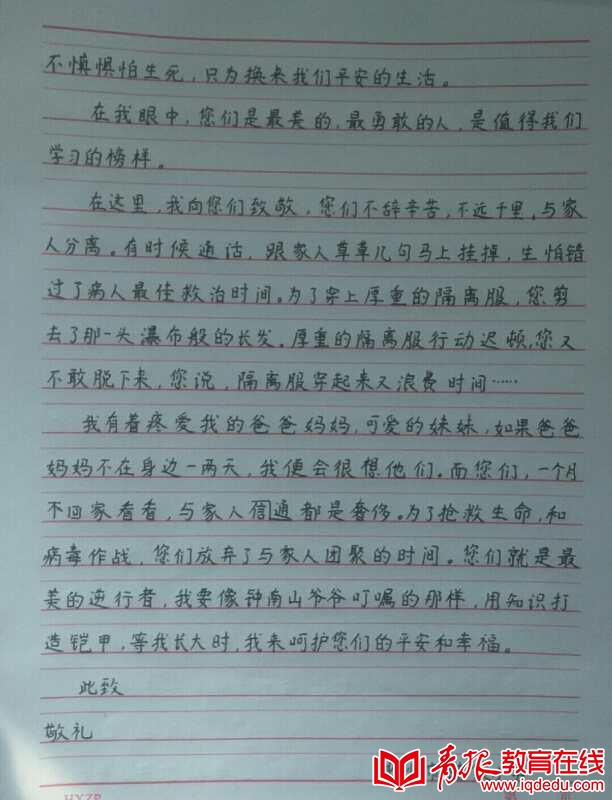 不慎惧怕生死，只为换来我们平安的生活。
在我眼中，您们是最美的，最勇敢的人，是值得我们
学习的榜样。
在这里，我向您们致敬，您们不辞辛苦，不远千里，与家
人分离。有时候通话，跟家人草草几句马上挂掉，生怕错
过了病人最佳救治时间。为了穿上厚重的隔离服，您剪
去了那一头瀑布般的长发。厚重的隔离服行动迟顿，您又
不敢脱下来，您说，隔离服穿起来又浪费时间……
我有着疼爱我的爸爸妈妈，可爱的妹妹，如果爸爸
妈妈不在身边一两天，我便会很想他们。而您们，一个月
不回家看看，与家人通都是奢侈。为了抢救生命，和
病毒作战，您们放弃了与家人团聚的时间。您们就是最
美的逆行者，我要像钟南山爷爷叮嘱的那样，用知识打
造铠甲，等我长大时，我来呵护您们的平安和幸福。
此致
敬礼
青报教育在线
www.iqdedu.com